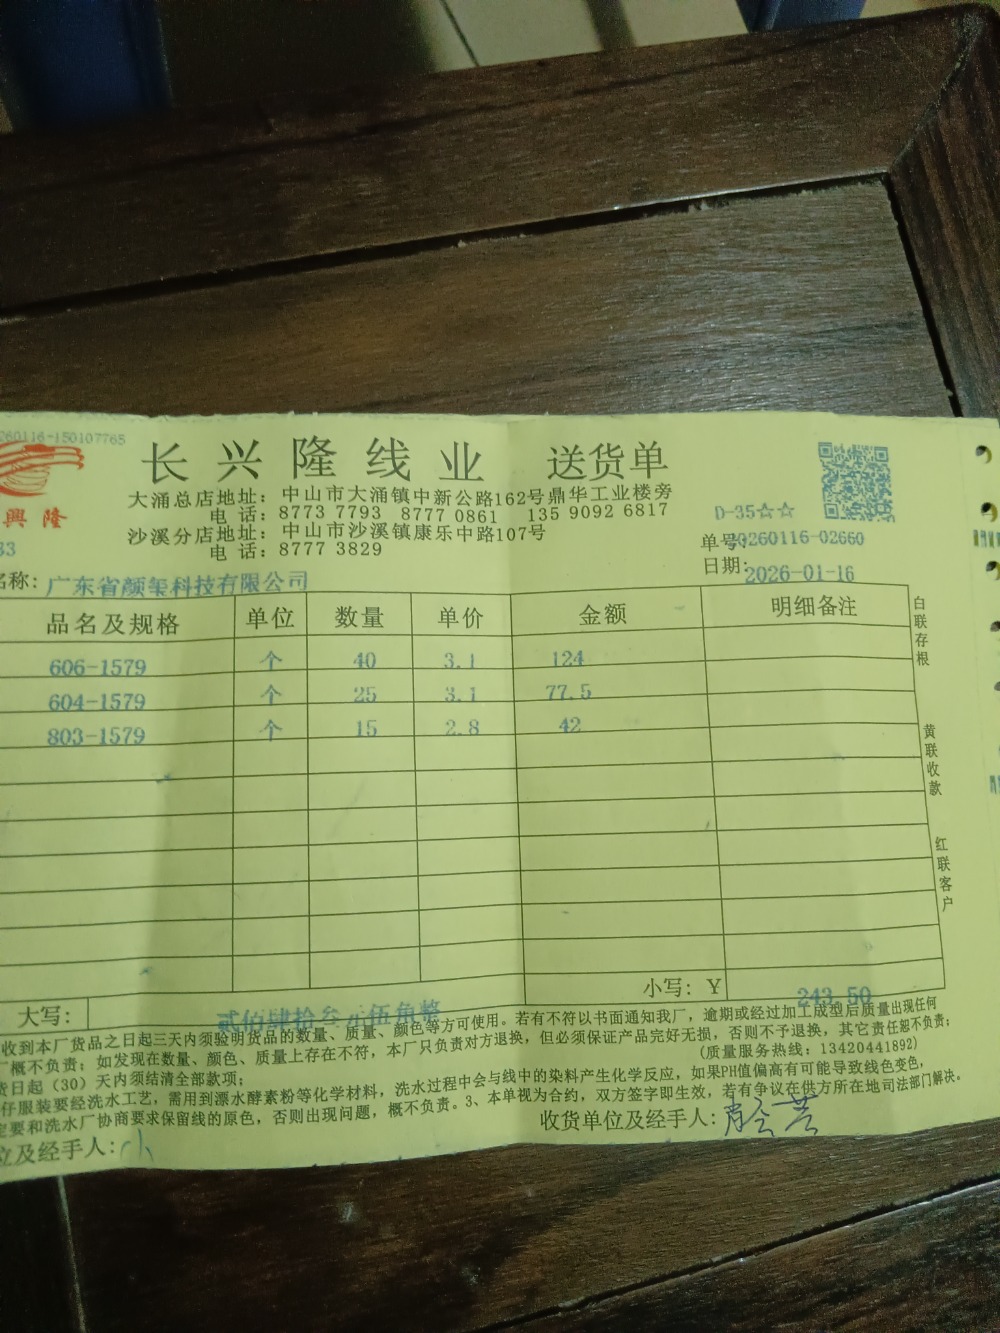 260116-150107765
長興隆
长兴隆线业 送货单
大涌总店地址：中山市大涌镇中新公路162号鼎华工业楼旁
电 话：8773 7793 8777 0861 135 9092 6817
沙溪分店地址：中山市沙溪镇康乐中路107号
电 话：8777 3829
D-35☆☆
单号:20260116-02660
日期:2026-01-16
33
名称：广东省颜玺科技有限公司
品名及规格 单位 数量 单价 金额 明细备注
606-1579 个 40 3.1 124
604-1579 个 25 3.1 77.5
803-1579 个 15 2.8 42
小写：￥ 243.50
大写： 贰佰肆拾叁元伍角整
收到本厂货品之日起三天内须验明货品的数量、质量、颜色等方可使用。若有不符以书面通知我厂，逾期或经过加工成型后质量出现任何
概不负责；如发现在数量、颜色、质量上存在不符，本厂只负责对方退换，但必须保证产品完好无损，否则不予退换，其它责任恕不负责；
货日起（30）天内须结清全部款项； (质量服务热线：13420441892)
仔服装要经洗水工艺，需用到漂水酵素粉等化学材料，洗水过程中会与线中的染料产生化学反应，如果PH值偏高有可能导致线色变色，
定要和洗水厂协商要求保留线的原色，否则出现问题，概不负责。3、本单视为合约，双方签字即生效，若有争议在供方所在地司法部门解决。
位及经手人： 收货单位及经手人：
白联存根
黄联收款
红联客户